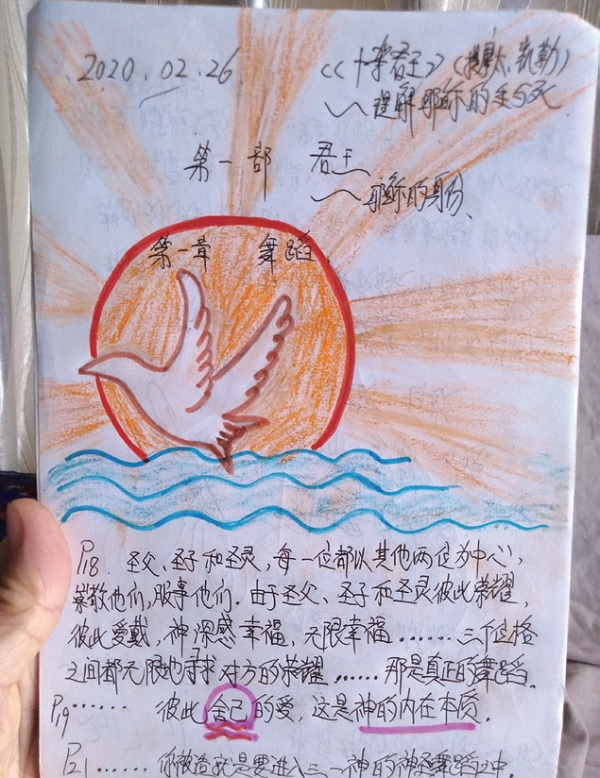 2020.02.26
《十字君王》(提摩太.凯勒)
~~理解耶稣的生与死
第一部 君王
~~耶稣的身份、
第一章 舞蹈.
P18. 圣父、圣子和圣灵,每一位都以其他两位为中心,
崇敬他们,服事他们.由于圣父、圣子和圣灵彼此荣耀,
彼此爱戴,神深感幸福,无限幸福……三个位格
之间都无限地寻求对方的荣耀……那是真正的舞蹈.
P19…… 彼此舍己的爱,这是神的内在本质.
P21……你被造就是要进入三一神的神圣舞蹈之中